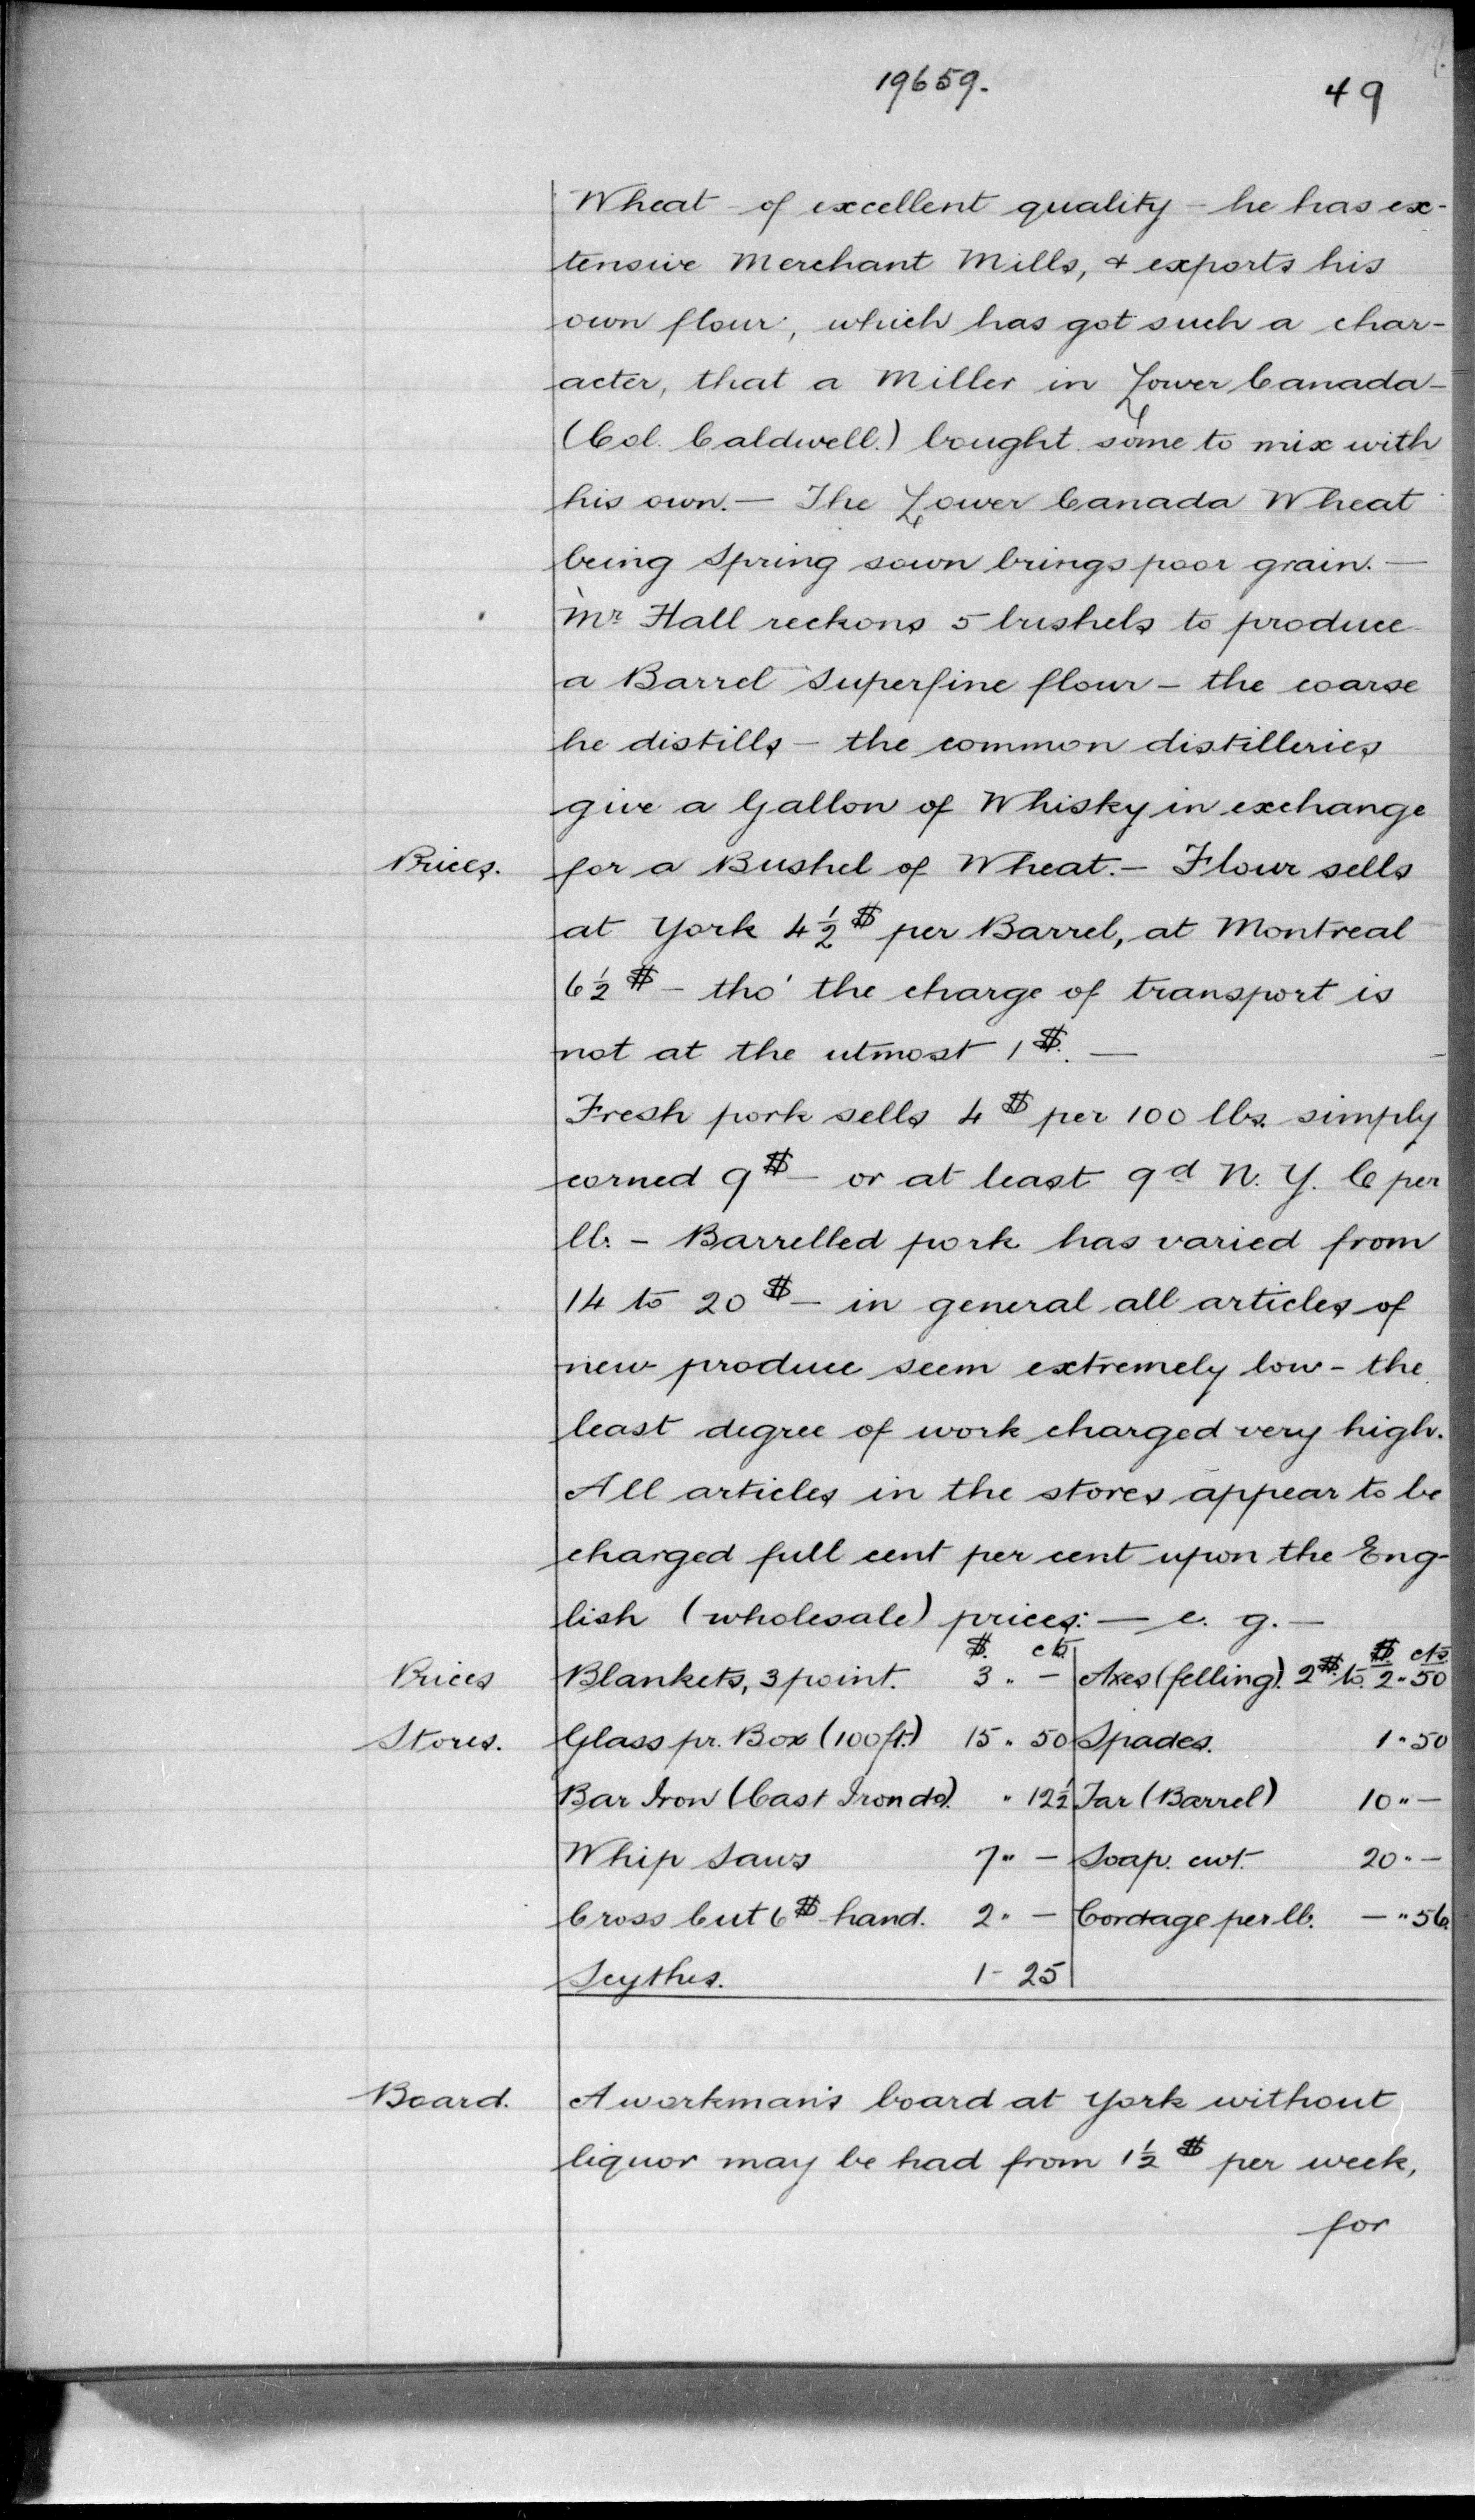 19659.
49
Wheat - of excellent quality - he has ex-
tensive Merchant Mills, & exports his
own flour, which has got such a char-
acter, that a Miller in Lower Canada -
(Col. Caldwell.) bought some to mix with
his own. — The Lower Canada Wheat
being Spring sown brings poor grain. —
Mr Hall reckons 5 bushels to produce
a Barrel Superfine flour - the coarse
he distills - the common distilleries
give a Gallon of Whisky in exchange
Prices. for a Bushel of Wheat. - Flour sells
at York 4½ $ per Barrel, at Montreal
6½ $ - tho' the charge of transport is
not at the utmost 1 $. —
Fresh pork sells 4 $ per 100 lbs. simply
corned 9 $ - or at least 9d N. Y. C per
lb. - Barrelled pork has varied from
14 to 20 $ - in general all articles of
new produce seem extremely low - the
least degree of work charged very high.
All articles in the stores appear to be
charged full cent per cent upon the Eng-
lish (wholesale) prices: — e. g. —
$. cts. $. cts.
Prices Blankets, 3 point. 3 " - Axes (felling). 2 $ to 2 " 50
Stores. Glass pr. Box (100 ft.) 15 " 50 Spades. 1 " 50
Bar Iron (Cast Iron do). " 12½ Tar (Barrel) 10 " -
Whip Saws 7 " - Soap. cwt. 20 " -
Cross Cut 6 $ - hand. 2 " - Cordage per lb. - " 56.
Scythes. 1 - 25
Board. A workman's board at York without
liquor may be had from 1½ $ per week,
for